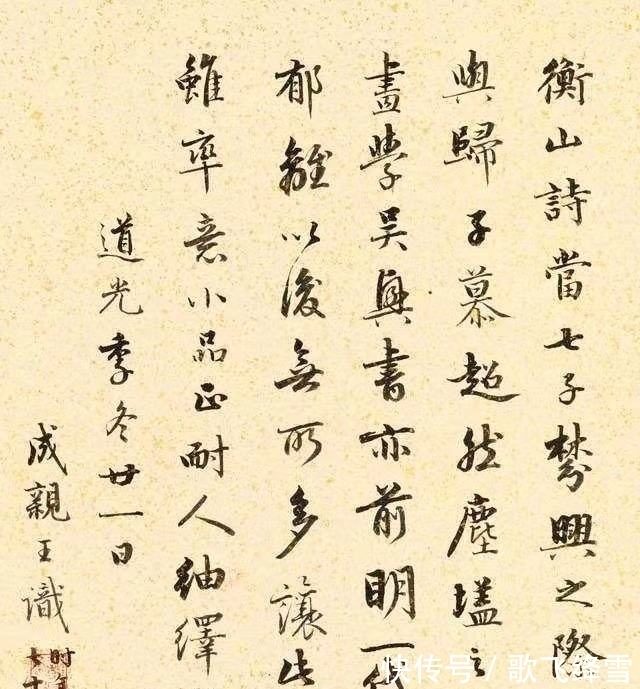 衡山詩當七子棼興之際
與歸子慕超然塵壒之
畫學吳興書亦前明一
郁離以後無所多讓此
雖率意小品正耐人紬繹
道光季冬廿一日
成親王識
快传号／歌飞锋雪